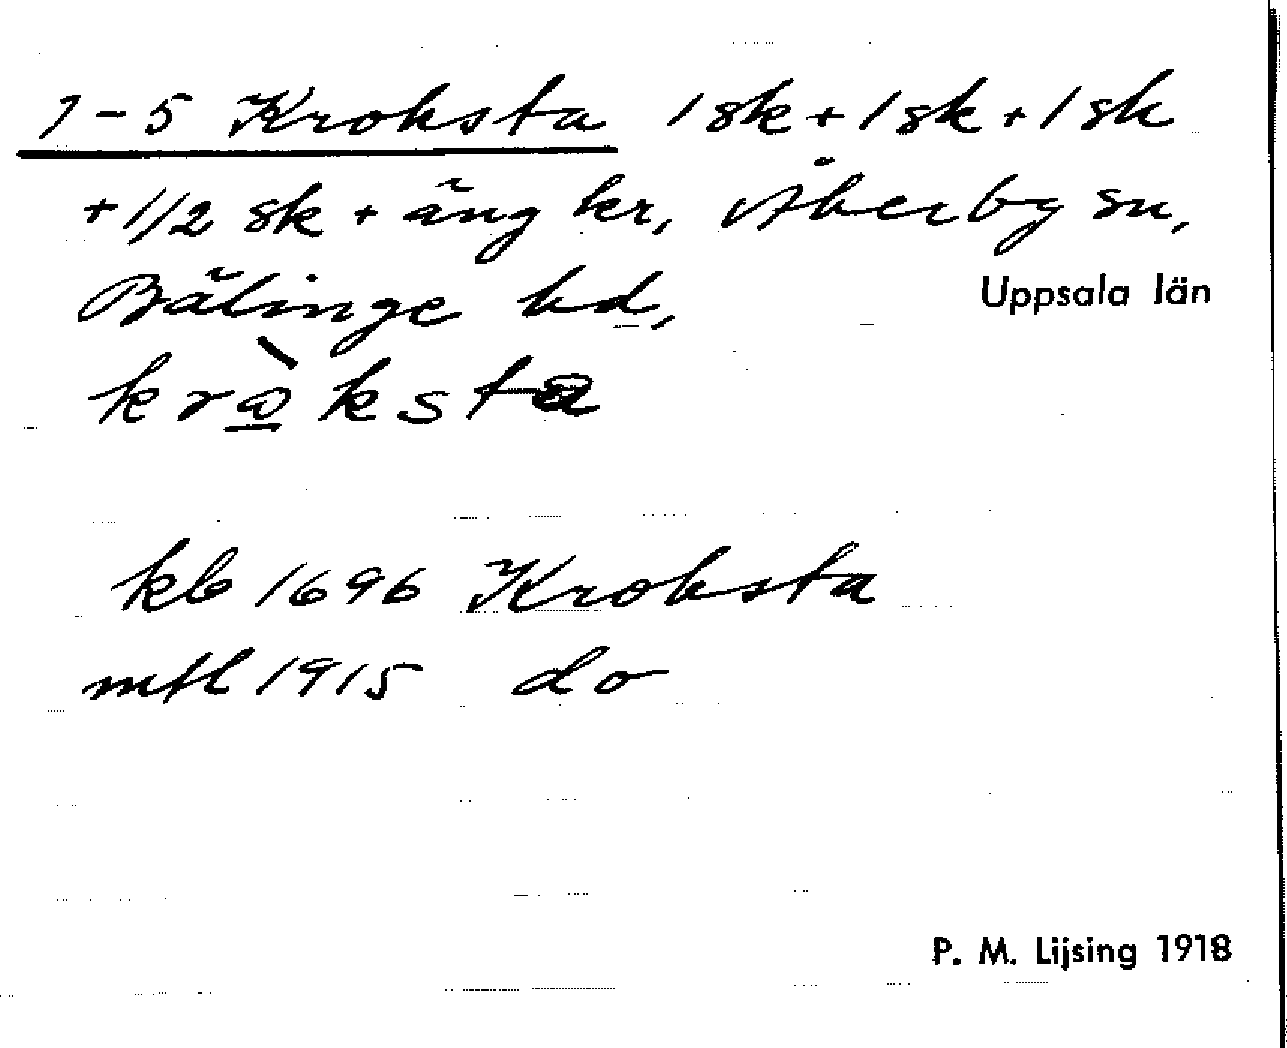 1-5 Kroksta 1 sk + 1 sk + 1 sk
+ 1/2 sk + äng kr, Åkerby sn,
Bälinge hd, Uppsala län
krὼ̲ksta
kb 1696 Kroksta
mtl 1915 do
P. M. Lijsing 1918